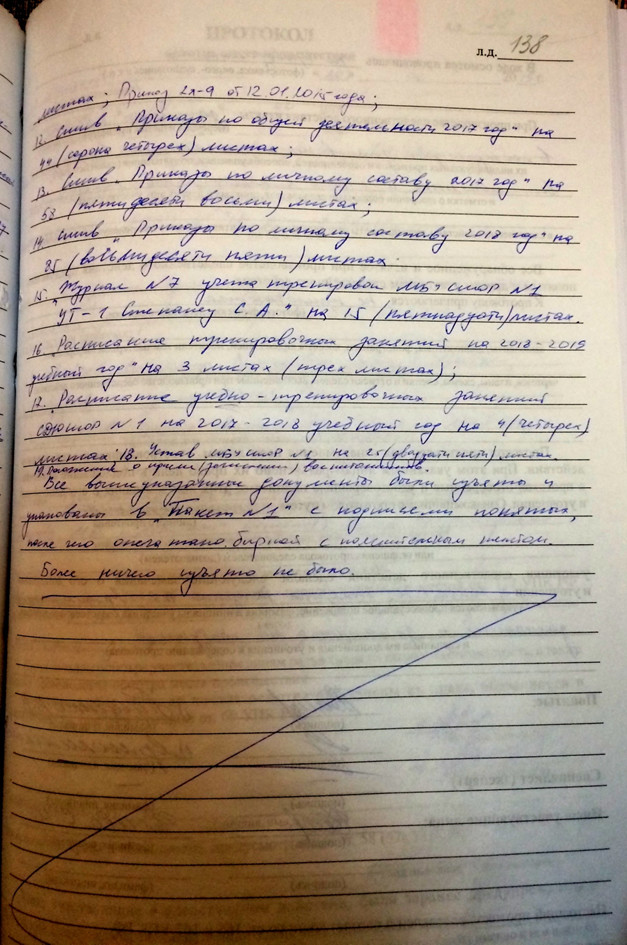 л.д. 138
листах; Приказ 2л-9 от 12.01.2015 года;
12. Сшив "Приказы по общей деятельности 2017 год" на
44 (сорока четырех) листах;
13. Сшив "Приказы по личному составу 2017 год" на
58 (пятидесяти восеми) листах;
14. Сшив "Приказы по личному составу 2018 год" на
85 (восьмидесяти пяти) листах.
15. "Журнал №7 учета тренировок №1
УТ-1 С.А." на 15 (пятнадцати) листах.
16. Расписание тренировочных занятий на 2018-2019
учебный год" на 3 листах (трех листах);
17. Расписание учебно-тренировочных занятий
СДЮШОР №1 на 2017-2018 учебный год на 4 (четырех)
листах. 18. Устав №1 на 25 (двадцати пяти) листах
19. Положение о приеме (зачислении) воспитанников.
Все вышеуказанные документы были изъяты и
упакованы в "Пакет №1" с подписями понятых,
после чего опечатано биркой с пояснительным текстом.
Более ничего изъято не было.